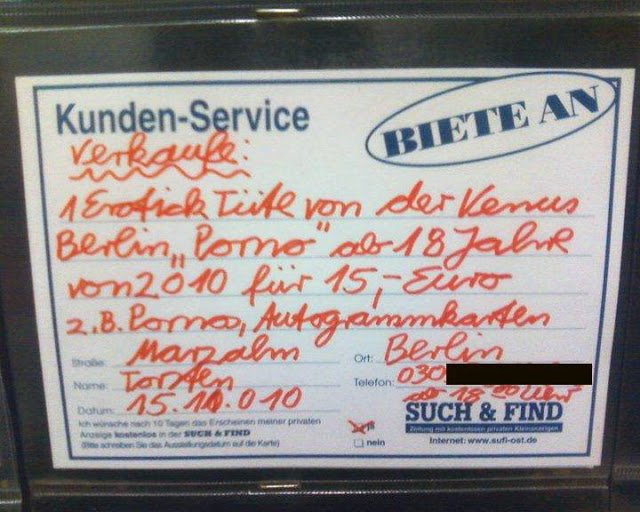 Kunden-Service
BIETE AN
verkaufe:
1 Erotick Tüte von der Venus
Berlin „Porno" ab 18 Jahre
von 2010 für 15,- Euro
z.B. Pornos, Autogrammkarten
Straße: Marzahn Ort: Berlin
Name: Torsten Telefon: 030
ab 18 00 Uhr
Datum: 15.10.010
Ich wünsche nach 10 Tagen das Erscheinen meiner privaten
Anzeige kostenlos in der SUCH & FIND
(Bitte schreiben Sie das Ausstellungsdatum auf die Karte)
ja
nein
SUCH & FIND
Zeitung mit kostenlosen privaten Kleinanzeigen
Internet: www.sufi-ost.de